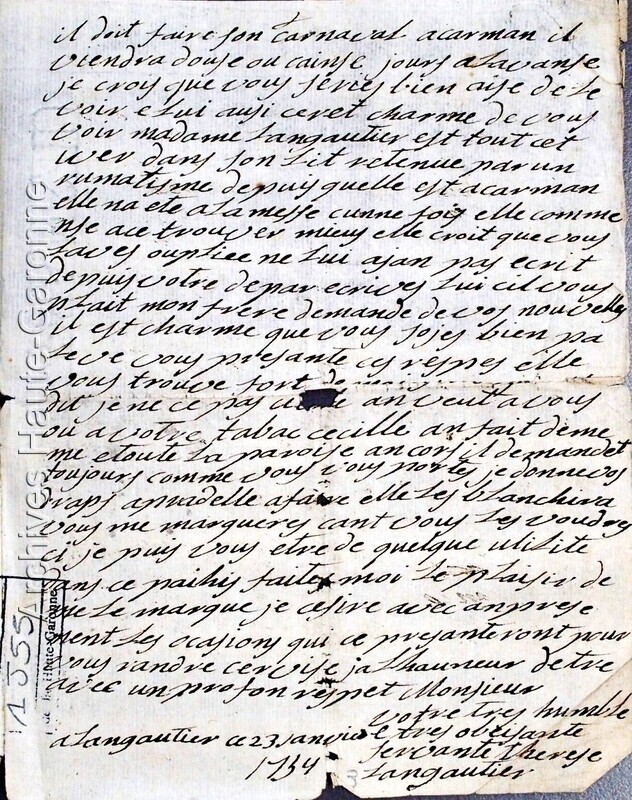 il doit faire son carnaval acarman il
viendra douse ou cainse jours alavanse
je crois que vous seriés bien aise de le
voir e lui ausi ceret charme de vous
voir madame langautier est tout cet
iver dans son lit retenue par un
rumatisme depuis quelle est acarman
elle na ete alamesse cunne fois elle comme
nse ace trouver mieus elle croit que vous
laves oupliee ne lui aian pas ecrit
depuis votre depar ecrives lui cil vous
plait mon frere demande de vos nouvelles
il est charme que vous sojes bien pa
leve vous presante ces respes elle
vous trouve fort de
dit je ne ce pas an veut a vous
ou a votre tabac cecille an fait deme
me etoute la paroise ancors il demandet
toujours comme vous vous portes je donne vos
raps apradelle afaire elle les blanchira
vous me marqueres cant vous les voudres
ci je puis vous etre de quelque utilite
ans ce paihis faites moi le plaisir de
me le marque je cesire avec anprese
ment les ocasions qui ce presanteront pour
vous randre cervise jalhauneur detre
avec un profon respet Monsieur
votre tres humble
e tres obeisante
servante therese
Langautier
alangautier ce 23 janvie
1754
3
1J55
Archives Haute-Garonne
Haute-Garonne